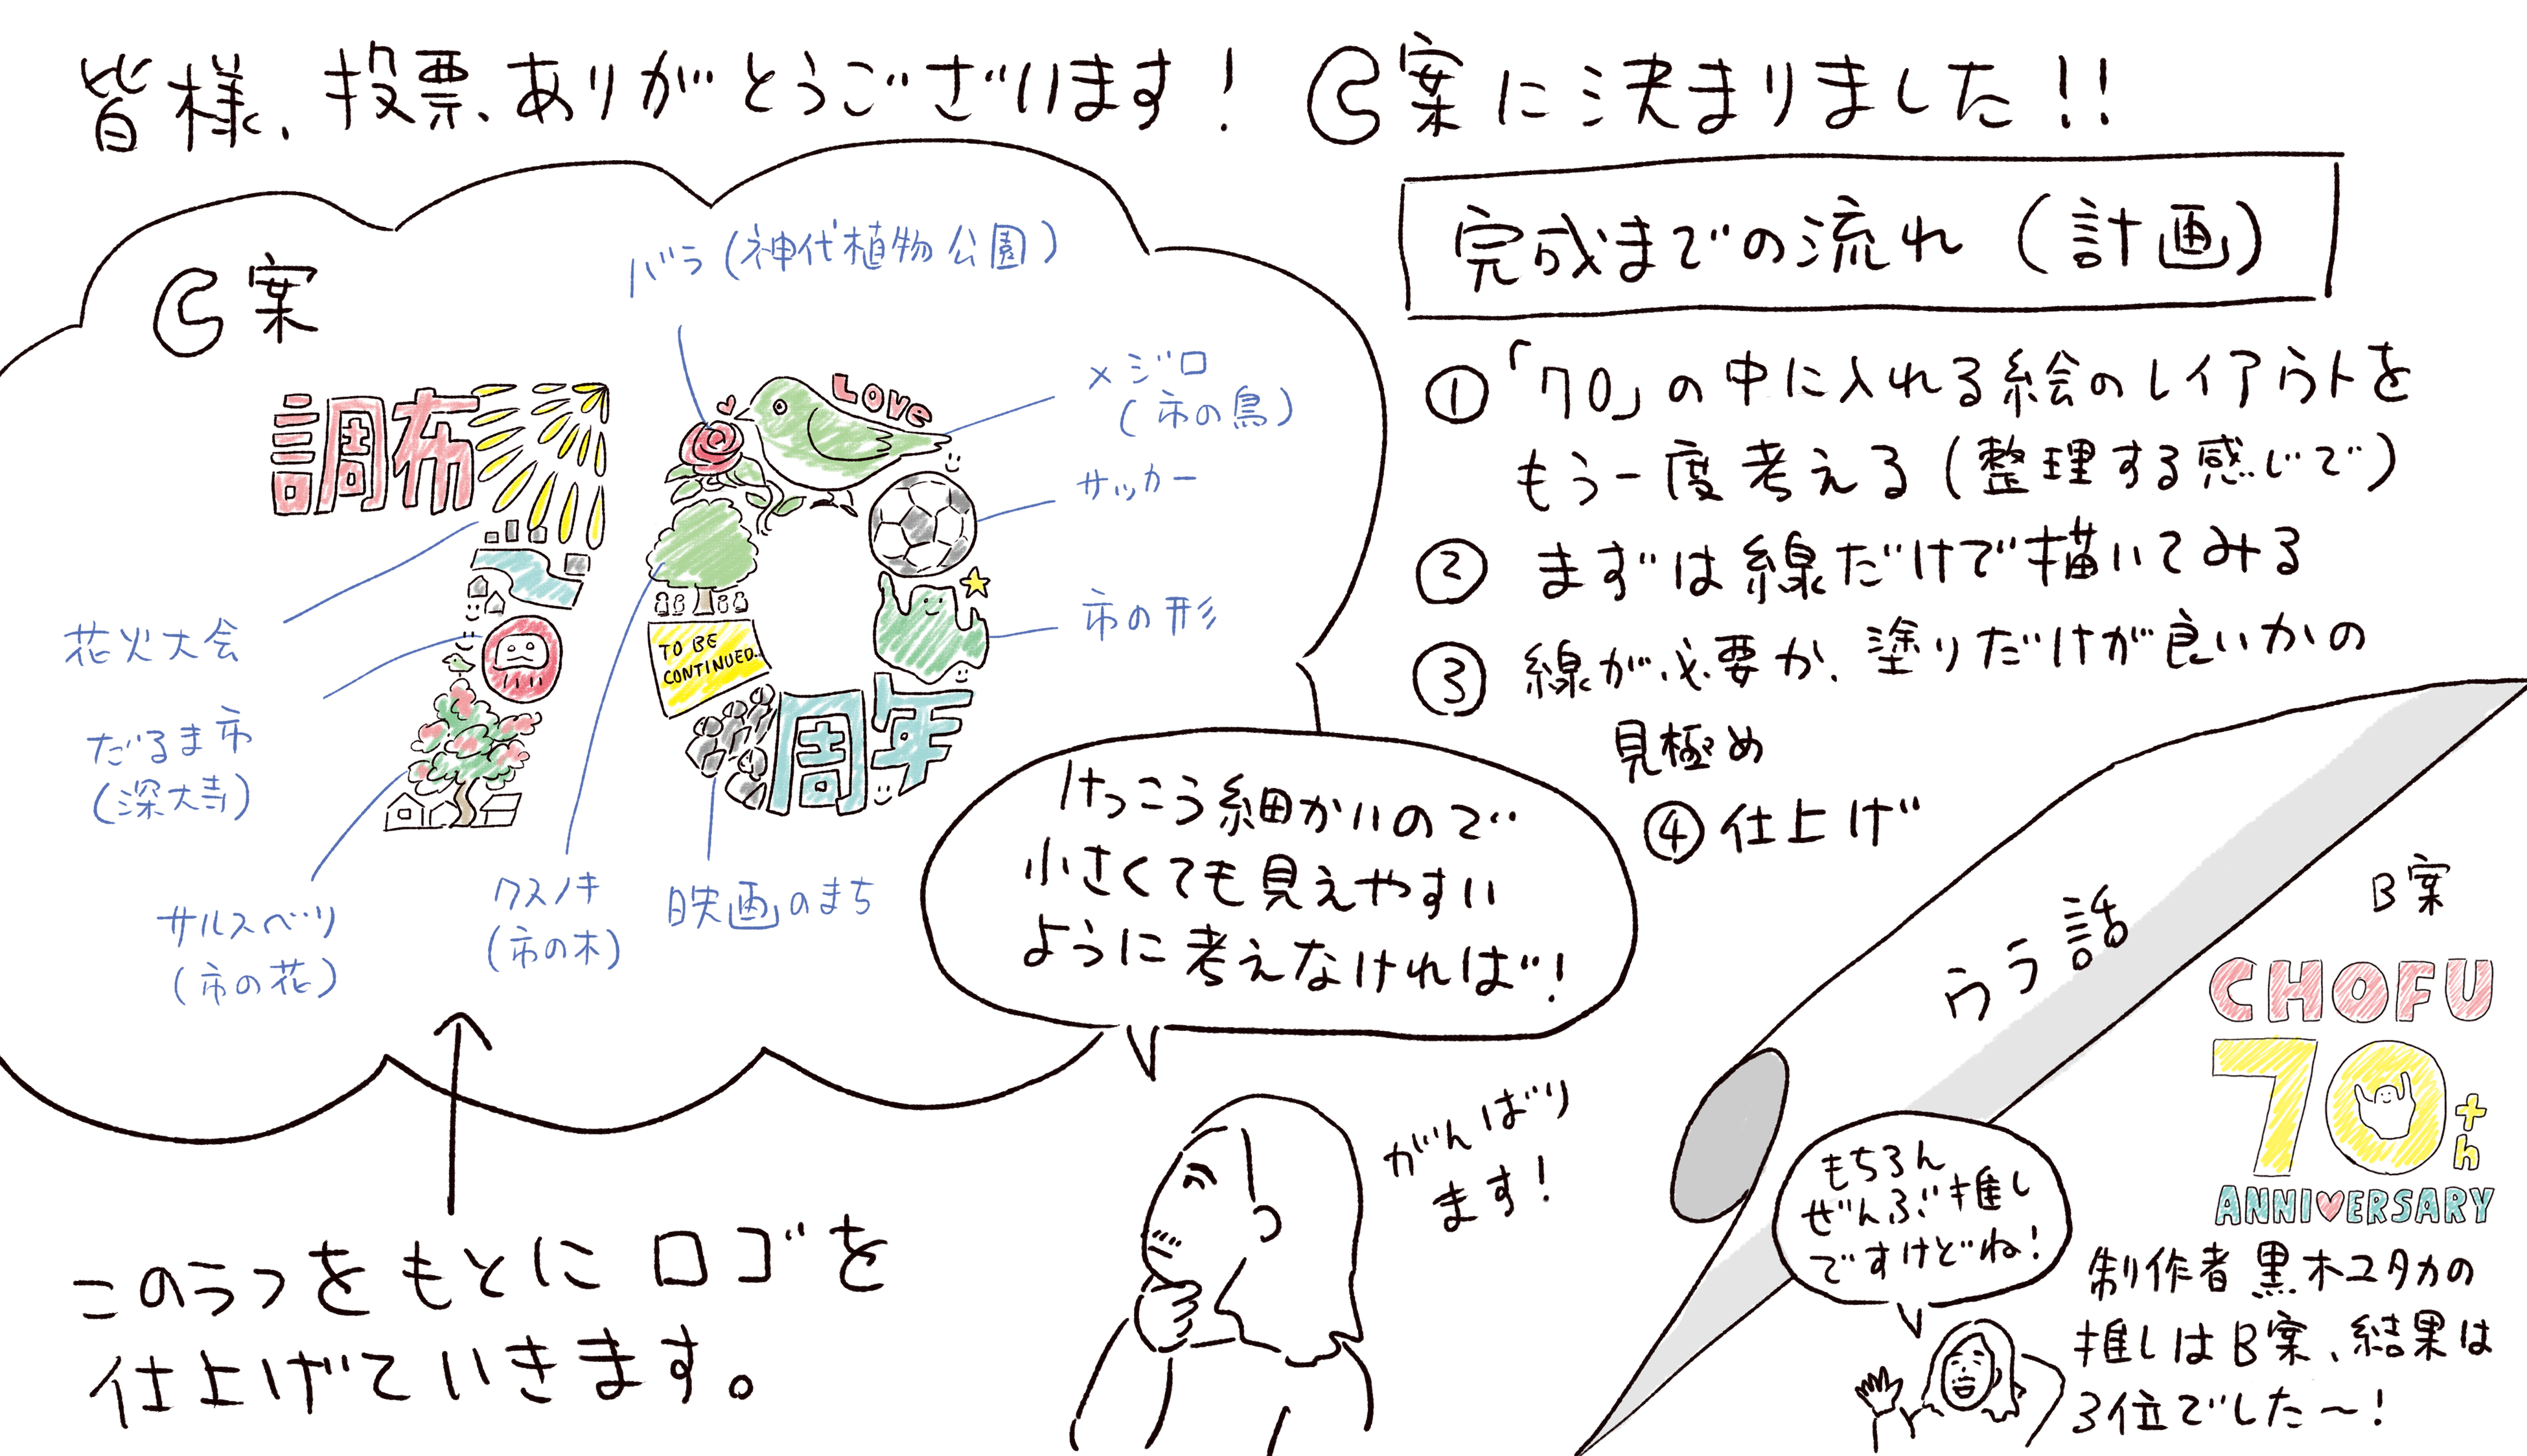 皆様、投票、ありがとうございます！ C案に決まりました！！
C案
バラ（神代植物公園）
メジロ
（市の鳥）
サッカー
市の形
花火大会
だるま市
（深大寺）
サルスベリ
（市の花）
クスノキ
（市の木）
映画のまち
調布
LOVE
TO BE
CONTINUED...
周年
このラフをもとにロゴを
仕上げていきます。
完成までの流れ（計画）
①「70」の中に入れる絵のレイアウトを
もう一度考える（整理する感じで）
② まずは線だけで描いてみる
③ 線が必要か、塗りだけが良いかの
見極め
④ 仕上げ
けっこう細かいので
小さくても見えやすい
ように考えなければ！
がんばり
ます！
ウラ話
B案
CHOFU
70th
ANNI♥ERSARY
もちろん
ぜんぶ推し
ですけどね！
制作者 黒木ユタカの
推しはB案、結果は
3位でした〜！